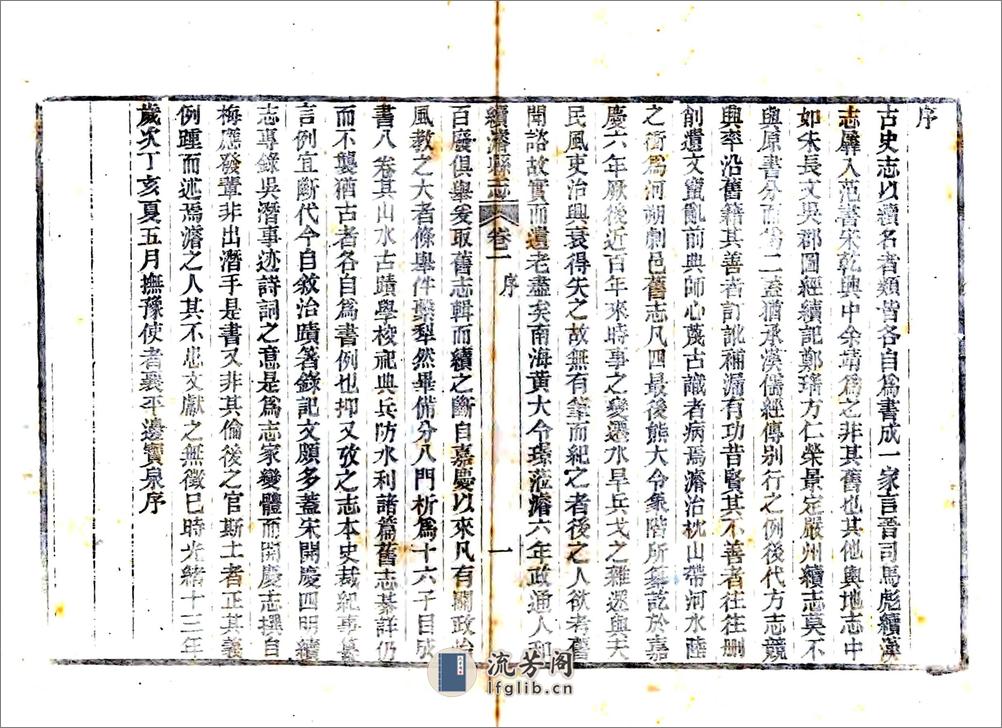 序
古史志以續名者類皆各自為書成一家言晉司馬彪續漢
志羼入范書宋乾興中余靖為之非其舊也其他輿地志中
如朱長文吳郡圖經續記鄭瑤方仁榮景定嚴州續志莫不
與原書分而為二蓋猶承漢儒經傳別行之例後代方志競
興率沿舊籍其善者訂訛補漏有功昔賢其不善者往往刪
創遺文竄亂前典師心蔑古識者病焉濬治枕山帶河水陸
之衝為河朔劇邑舊志凡四最後熊大令象階所纂訖於嘉
慶六年厥後近百年來時事之變遷水旱兵戈之雜遝與夫
民風吏治興衰得失之故無有筆而紀之者後之人欲考舊
聞諮故實而遺老盡矣南海黃大令璟蒞濬六年政通人和
續濬縣志
卷一
序
一
百廢俱舉爰取舊志輯而續之斷自嘉慶以來凡有關政治
風教之大者條舉件繫犁然畢備分八門析為十六子目成
書八卷其山水古蹟學校祀典兵防水利諸篇舊志綦詳仍
而不襲猶古者各自為書例也抑又攷之志本史裁紀事纂
言例宜斷代今自敘治蹟箸錄記文頗多蓋宋開慶四明續
志專錄吳潛事迹詩詞之意是為志家變體而開慶志撰自
梅應發輩非出潛手是書又非其倫後之官斯土者正其義
例踵而述焉濬之人其不患文獻之無徵已時光緒十三年
歲次丁亥夏五月撫豫使者襄平邊寶泉序
流芳阁
lfglib.cn